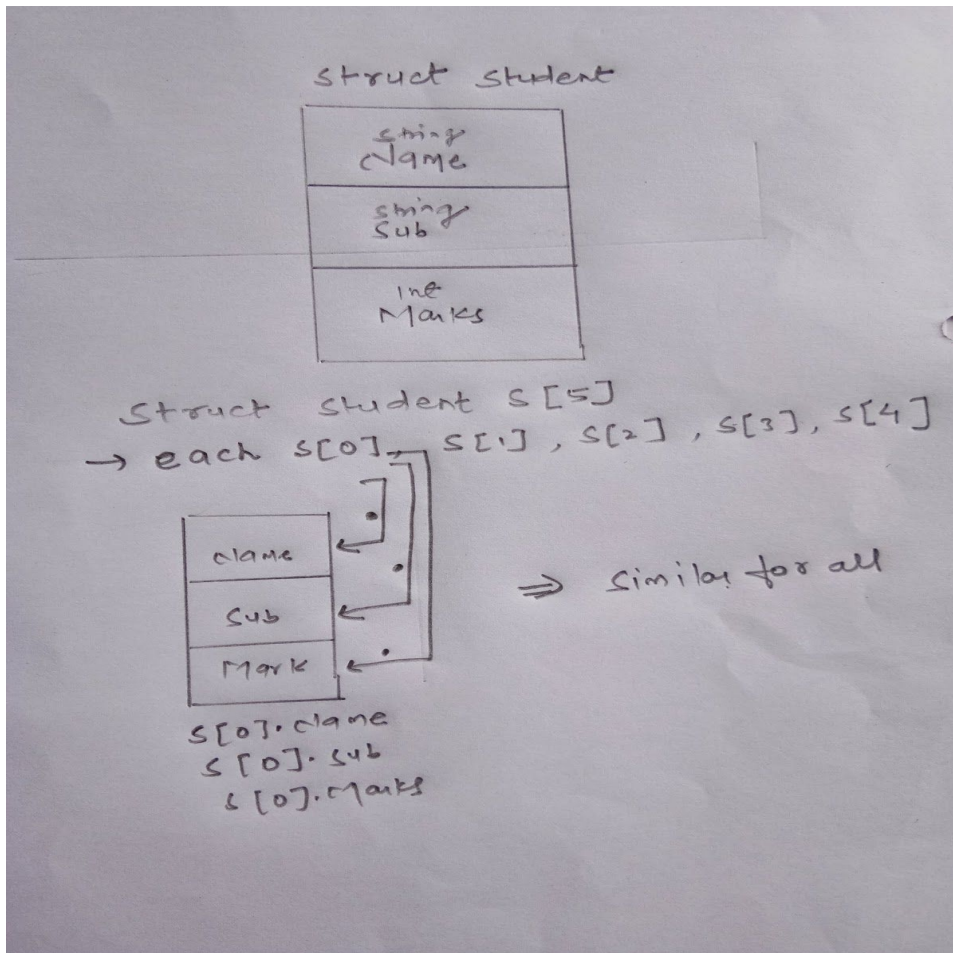 struct student
string
Name
string
Sub
int
Marks
Struct student S[5]
→ each S[0], S[1], S[2], S[3], S[4]
Name
Sub
Mark
⇒ Similar for all
S[0].Name
S[0].Sub
S[0].Marks